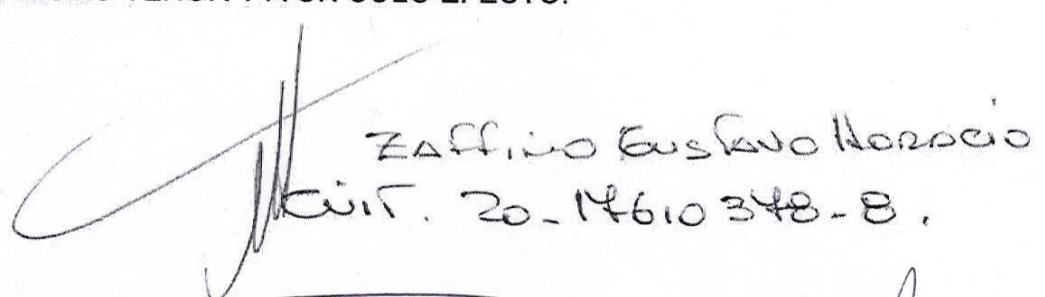 Zaffino Gustavo Horacio
Cuit. 20-17610378-8.